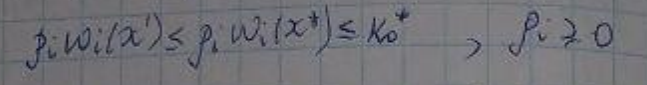 ρᵢ wᵢ(x') ≤ ρᵢ wᵢ(x*) ≤ K₀* , ρᵢ ≥ 0